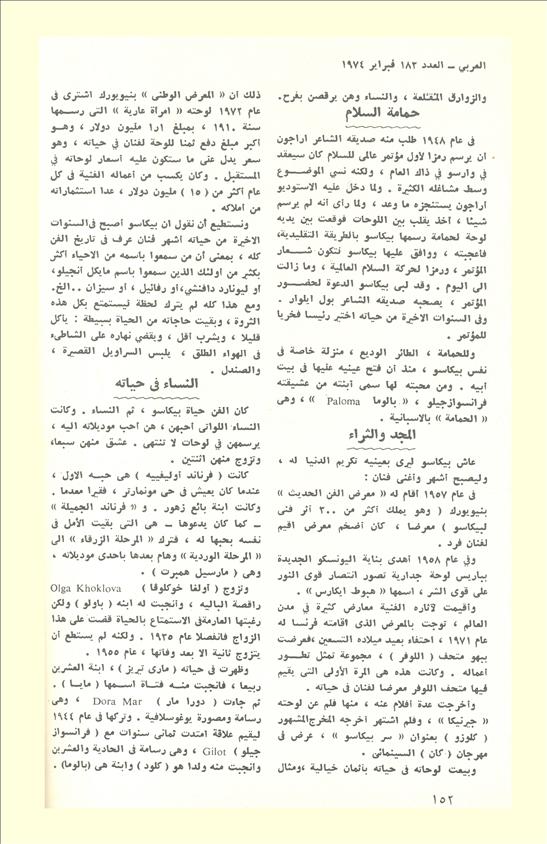 العربي – العدد ١٨٣ فبراير ١٩٧٤
والزوارق المقلعة ، والنساء وهن يرقصن بفرح.
حمامة السلام
فى عام ١٩٤٨ طلب منه صديقه الشاعر اراجون
ان يرسم رمزا لاول مؤتمر عالمى للسلام كان سيعقد
في وارسو في ذاك العام ، ولكنه نسي الموضوع
وسط مشاغله الكثيرة . ولما دخل عليه الاستوديو
اراجون يستنجزه ما وعد ، ولما رأى أنه لم يرسم
شيئا ، أخذ يقلب بين اللوحات فوقعت بين يديه
لوحة لحمامة رسمها بيكاسو بالطريقة التقليدية،
فاعجبته ، ووافق عليها بيكاسو لتكون شعار
المؤتمر ، ورمزا لحركة السلام العالمية ، وما زالت
الى اليوم . وقد لبى بيكاسو الدعوة لحضور
المؤتمر ، يصحبه صديقه الشاعر بول ايلوار .
وفى السنوات الاخيرة من حياته اختير رئيسا فخريا
للمؤتمر .
وللحمامة ، الطائر الوديع ، منزلة خاصة فى
نفس بيكاسو ، منذ أن فتح عينيه عليها في بيت
أبيه . ومن محبته لها سمى ابنته من عشيقته
فرانسوازجيلو ، « بالوما Paloma » ، وهى
« الحمامة » بالاسبانية .
المجد والثراء
عاش بيكاسو ليرى بعينيه تكريم الدنيا له ،
وليصبح أشهر وأغنى فنان :
فى عام ١٩٥٧ أقام له « معرض الفن الحديث »
بنيويورك ( وهو يملك أكثر من ٣٠٠ أثر فنى
لبيكاسو ) معرضا ، كان أضخم معرض اقيم
لفنان فرد .
وفي عام ١٩٥٨ أهدى بناية اليونسكو الجديدة
بباريس لوحة جدارية تصور انتصار قوى النور
على قوى الشر ، اسمها « هبوط ايكارس » .
وأقيمت لآثاره الفنية معارض كثيرة في مدن
العالم ، توجت بالمعرض الذى اقامته فرنسا له
عام ١٩٧١ ، احتفاء بعيد ميلاده التسعين ،فعرضت
ببهو متحف ( اللوفر ) ، مجموعة تمثل تطور
أعماله . وكانت هذه هى المرة الأولى التى يقيم
فيها متحف اللوفر معرضا لفنان في حياته .
وأخرجت عدة افلام عنه ، منها فلم عن لوحته
« جيرنيكا » ، وفلم اشتهر أخرجه المخرج المشهور
( كلوزو ) بعنوان « سر بيكاسو » ، عرض فى
مهرجان ( كان ) السينمائى .
وبيعت لوحاته فى حياته بأثمان خيالية ،ومثال
ذلك أن « المعرض الوطنى » بنيويورك اشترى فى
عام ١٩٧٢ لوحته « امرأة عارية » التى رسمها
سنة ١٩١٠ ، بمبلغ ١ر١ مليون دولار ، وهو
أكبر مبلغ دفع ثمنا للوحة لفنان في حياته ، وهو
سعر يدل على ما ستكون عليه أسعار لوحاته في
المستقبل . وكان يكسب من أعماله الفنية فى كل
عام أكثر من ( ١٥ ) مليون دولار ، عدا استثماراته
من أملاكه .
ونستطيع أن نقول ان بيكاسو أصبح فى السنوات
الاخيرة من حياته أشهر فنان عرف في تاريخ الفن
كله ، بمعنى أن من سمعوا باسمه من الاحياء أكثر
بكثير من أولئك الذين سمعوا باسم مايكل أنجيلو،
أو ليونارد دافنشي،أو رفائيل ، أو سيزان ..الخ.
ومع هذا كله لم يترك لحظة ليستمتع بكل هذه
الثروة ، وبقيت حاجاته من الحياة بسيطة : يأكل
قليلا ، ويشرب أقل ، ويقضي نهاره على الشاطىء
في الهواء الطلق ، يلبس السراويل القصيرة ،
والصندل .
النساء فى حياته
كان الفن حياة بيكاسو ، ثم النساء . وكانت
النساء اللواتى أحبهن ، هن أحب موديلاته اليه ،
يرسمهن في لوحات لا تنتهى . عشق منهن سبعا،
وتزوج منهن اثنتين .
كانت ( فرناند أوليفييه ) هى حبه الاول ،
عندما كان يعيش في حى مونمارتر ، فقيرا معدما .
وكانت ابنة بائع زهور . و « فرناند الجميلة »
ـ كما كان يدعوها ـ هى التى بقيت الأمل في
نفسه بحبها له ، فترك « المرحلة الزرقاء » الى
« المرحلة الوردية » وهام بعدها باحدى موديلاته ،
وهى ( مارسيل همبرت ) .
وتزوج ( أولغا خوكلوفا ) Olga Khoklova
راقصة الباليه ، وأنجبت له ابنه ( باولو ) ولكن
رغبتها العارمة في الاستمتاع بالحياة قضت على هذا
الزواج فانفصلا عام ١٩٣٥ . ولكنه لم يستطع أن
يتزوج ثانية الا بعد وفاتها ، عام ١٩٥٥ .
وظهرت في حياته ( مارى تيريز ) ، ابنة العشرين
ربيعا ، فانجبت منه فتاة اسمها ( مايا ) .
ثم جاءت ( دورا مار ) Dora Mar ، وهى
رسامة ومصورة يوغوسلافية . وتركها فى عام ١٩٤٤
ليقيم علاقة امتدت ثمانى سنوات مع ( فرانسواز
جيلو ) Gilot ، وهى رسامة في الحادية والعشرين
وأنجبت منه ولدا هو ( كلود ) وابنة هى (بالوما) .
١٥٢